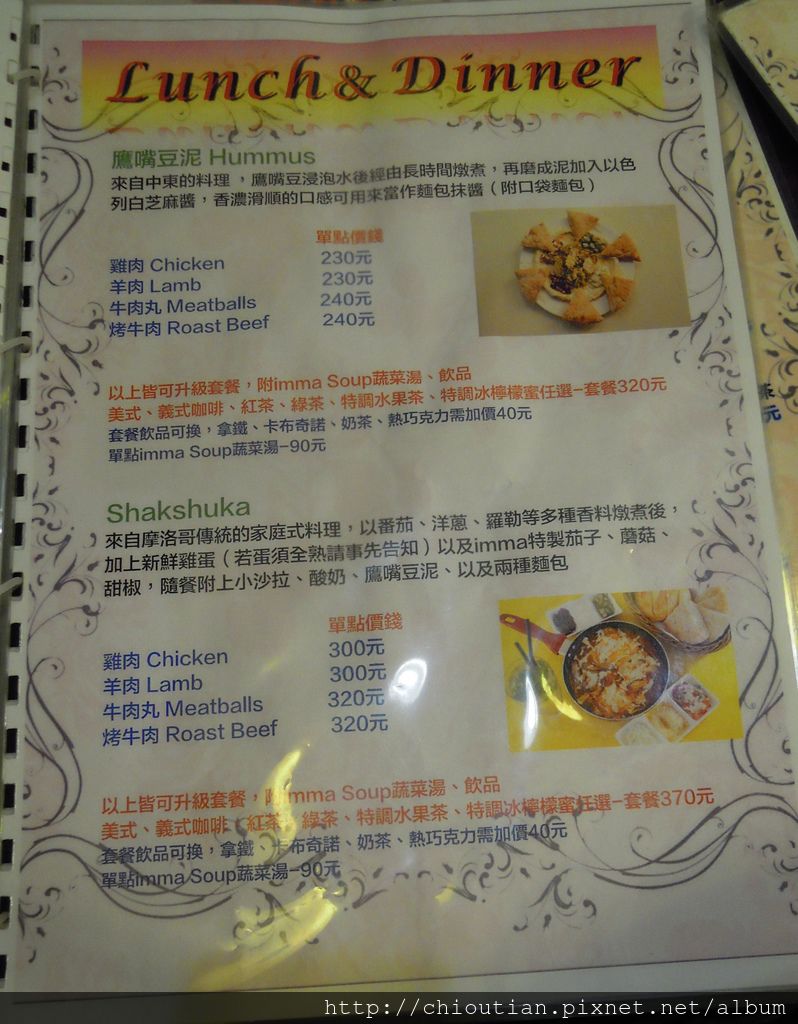 Lunch & Dinner
鷹嘴豆泥 Hummus
來自中東的料理，鷹嘴豆浸泡水後經由長時間燉煮，再磨成泥加入以色
列白芝麻醬，香濃滑順的口感可用來當作麵包抹醬（附口袋麵包）
單點價錢
雞肉 Chicken 230元
羊肉 Lamb 230元
牛肉丸 Meatballs 240元
烤牛肉 Roast Beef 240元
以上皆可升級套餐，附imma Soup蔬菜湯、飲品
美式、義式咖啡、紅茶、綠茶、特調水果茶、特調冰檸檬蜜任選–套餐320元
套餐飲品可換，拿鐵、卡布奇諾、奶茶、熱巧克力需加價40元
單點imma Soup蔬菜湯–90元
Shakshuka
來自摩洛哥傳統的家庭式料理，以番茄、洋蔥、羅勒等多種香料燉煮後，
加上新鮮雞蛋（若蛋須全熟請事先告知）以及imma特製茄子、蘑菇、
甜椒，隨餐附上小沙拉、酸奶、鷹嘴豆泥、以及兩種麵包
單點價錢
雞肉 Chicken 300元
羊肉 Lamb 300元
牛肉丸 Meatballs 320元
烤牛肉 Roast Beef 320元
以上皆可升級套餐，附imma Soup蔬菜湯、飲品
美式、義式咖啡、紅茶、綠茶、特調水果茶、特調冰檸檬蜜任選–套餐370元
套餐飲品可換，拿鐵、卡布奇諾、奶茶、熱巧克力需加價40元
單點imma Soup蔬菜湯–90元
茶
元
http://chioutian.pixnet.net/album